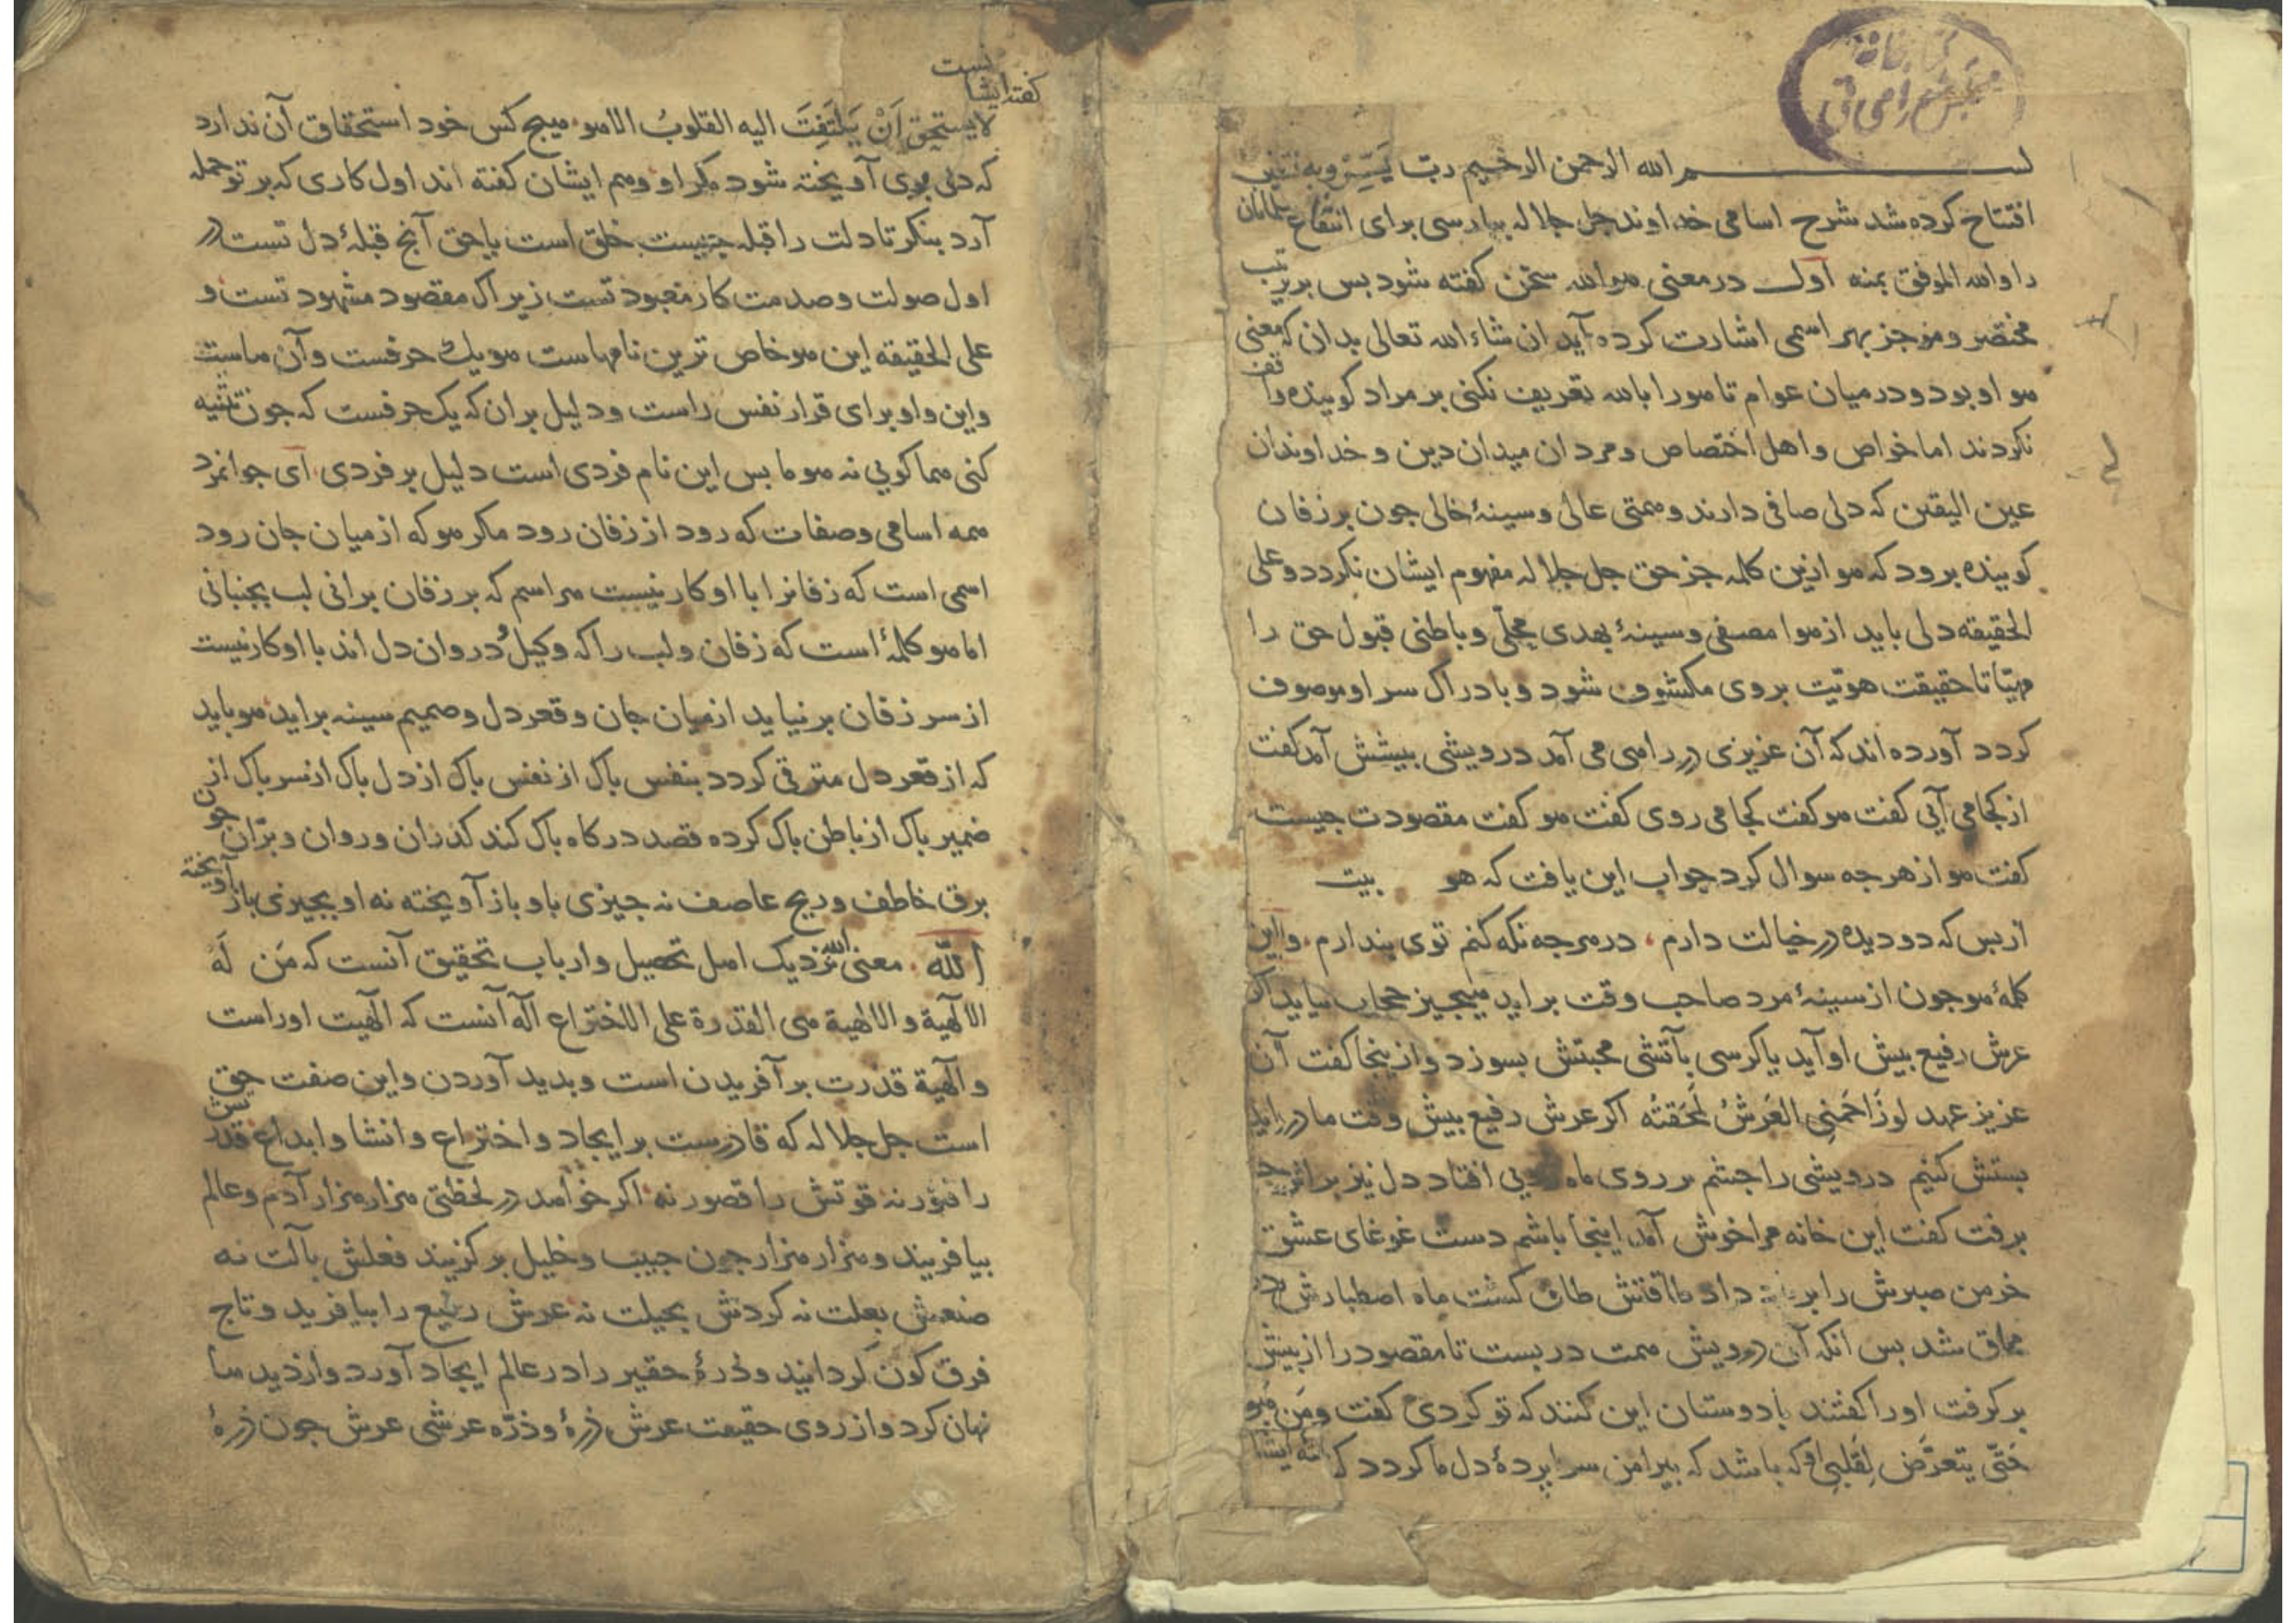 کتابخانه
مجلس شورای ملی
بسم الله الرحمن الرحیم رب یَسِّرْ وبه نستعین
افتتاح کرده شد شرح اسامی خداوند جل جلاله بپارسی برای انتفاع مسلمانان
را والله الموفق بمنه اول در معنی هو الله سخن کفته شود بس بر ترتیب
مختصر وموجز بهر اسمی اشارت کرده آید ان شاء الله تعالی بدان که معنی
هو او بود ودر میان عوام تا هو را بالله تعریف نکنی بر مراد کوینده واقف
نکردند اما خواص واهل اختصاص ومردان میدان دین وخداوندان
عین الیقین که دلی صافی دارند وهمتی عالی وسینهٔ خالی جون بر زفان
کوینده برود که هو ازین کلمه جز حق جل جلاله مفهوم ایشان نکردد وعلی
الحقیقه دلی باید از هوا مصفی وسینهٔ بهدی مجلّی وباطنی قبول حق را
مهیّا تا حقیقت هویّت بروی مکشوف شود وبادراک سر او موصوف
کردد آورده اند که آن عزیزی در راهی می آمد درویشی بیشش آمد کفت
از کجا می آیی کفت هو کفت کجا می روی کفت هو کفت مقصودت جیست
کفت هو از هرجه سوال کرد جواب این یافت که هو بیت
از بس که دو دیده در خیالت دارم در هرجه نکه کنم توی بندارم واین
کلمهٔ هو جون از سینهٔ مرد صاحب وقت براید هیجیز حجاب نیاید اکر
عرش رفیع بیش او آید یا کرسی بآتشی محبتش بسوزد وازینجا کفت آن
عزیز عهد لو زَاحَمَنِی العَرشُ لَمحَقتُه اکر عرش رفیع بیش وقت ما در اید
بستش کنیم درویشی را جشم بر روی ماه رویی افتاد دل نیز بر اثر
برفت کفت این خانه مرا خوش آمد اینجا باشم دست غوغای عشق
خرمن صبرش را بر داد طاقتش طاق کشت ماه اصطبارش در
محاق شد بس انکه آن درویش همت در بست تا مقصود را از بیش
برکرفت اورا کفتند با دوستان این کنند که تو کردی کفت ومَن هُو
حَتّی یتعرَّض لِقَلبِی او که باشد که بیرامن سرابردهٔ دل ما کردد که
کفته ایشانست
لا یستحق اَنْ یَلتَفِتَ الیه القلوبُ الا هو هیج کس خود استحقاق آن ندارد
که دلی بوی آویخته شود مکر او وهم ایشان کفته اند اول کاری که بر تو حمله
آرد بنکر تا دلت را قبله جیست خلق است یا حق آنج قبلهٔ دل تست در
اول صولت وصدمت کار معبود تست زیراک مقصود مشهود تست و
علی الحقیقه این هو خاص ترین نامهاست هو یک حرفست وآن هاست
واین واو برای قرار نفس راست ودلیل بران که یک حرفست که جون تثنیه
کنی هما کویی نه هوما بس این نام فردی است دلیل بر فردی ای جوانمرد
همه اسامی وصفات که رود از زفان رود مکر هو که از میان جان رود
اسمی است که زفانرا با او کار نیست هر اسم که بر زفان برانی لب بجنبانی
اما هو کلمهٔ است که زفان ولب را که وکیلُ در وان دل اند با او کار نیست
از سر زفان بر نیاید از میان جان وقعر دل وصمیم سینه براید هو باید
که از قعر دل مترقی کردد بنفس باک از نفس باک از دل باک از سر باک از
ضمیر باک از باطن باک کرده قصد درکاه باک کند کذران وروان وبرّان جون
برق خاطف وریح عاصف نه جیزی باو باز آویخته نه او بجیزی باز آویخته
الله معنی الله نزدیک اهل تحصیل وارباب تحقیق آنست که مَن لَه
الالٓهیة والالهیة هی القدرة علی الاختراع الٓه آنست که الٓهیت اوراست
والٓهیة قدرت بر آفریدن است وبدید آوردن واین صفت حق
است جل جلاله که قادرست بر ایجاد واختراع وانشا وابداع قدرتش
را فتور نه قوتش را قصور نه اکر خواهد در لحظتی هزار هزار آدم وعالم
بیافریند وهزار هزار جون حبیب وخلیل برکزیند فعلش بآلت نه
صنعش بعلت نه کردش بحیلت نه عرش رفیع را بیافرید وتاج
فرق کون کردانید وذرهٔ حقیر را در عالم ایجاد آورد واز دیدها
نهان کرد واز روی حقیقت عرش ذرهٔ وذرّه عرشی عرش جون ذرهٔ